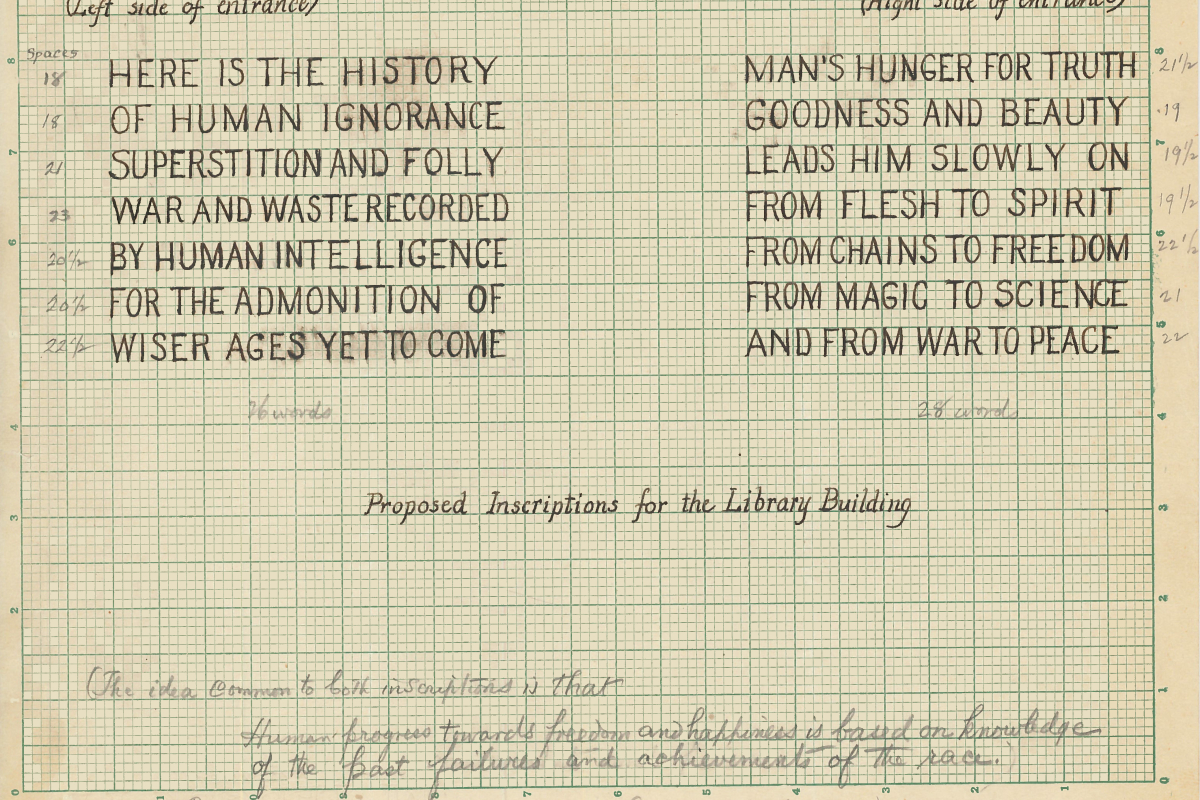 (Left side of entrance)
(Right side of entrance)
Spaces
18 HERE IS THE HISTORY
18 OF HUMAN IGNORANCE
21 SUPERSTITION AND FOLLY
23 WAR AND WASTE RECORDED
20½ BY HUMAN INTELLIGENCE
20½ FOR THE ADMONITION OF
22½ WISER AGES YET TO COME
26 words
MAN'S HUNGER FOR TRUTH 21½
GOODNESS AND BEAUTY 19
LEADS HIM SLOWLY ON 19½
FROM FLESH TO SPIRIT 19½
FROM CHAINS TO FREEDOM 22½
FROM MAGIC TO SCIENCE 21
AND FROM WAR TO PEACE 22
28 words
Proposed Inscriptions for the Library Building
(The idea common to both inscriptions is that
Human progress towards freedom and happiness is based on knowledge
of the past failures and achievements of the race.)
8
7
6
5
4
3
2
1
0
8
7
6
5
4
3
2
1
0
1
0
9
8
7
6
5
4
3
2
1